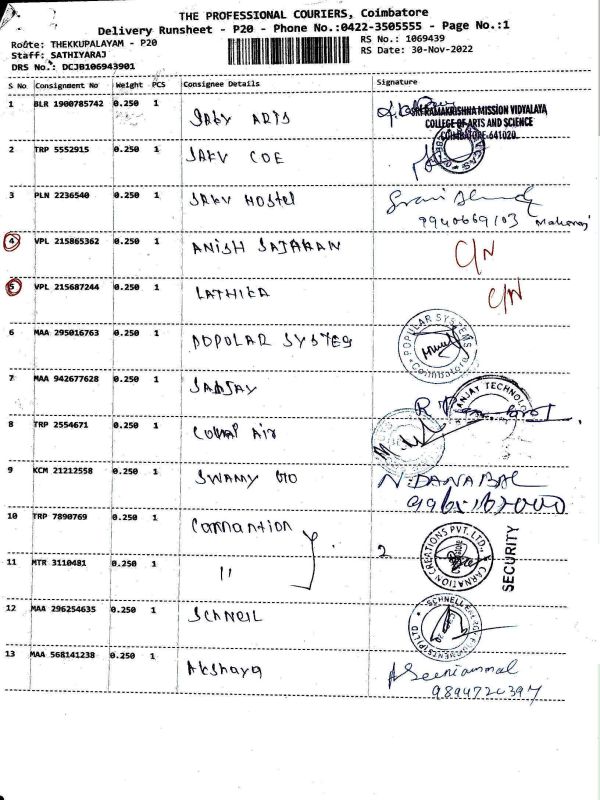 THE PROFESSIONAL COURIERS, Coimbatore
Delivery Runsheet - P20 - Phone No.:0422-3505555 - Page No.:1
Route: THEKKUPALAYAM - P20
Staff: SATHIYARAJ
DRS No.: DCJB106943901
RS No.: 1069439
RS Date: 30-Nov-2022
S No Consignment No Weight PCS Consignee Details Signature
1 BLR 1900785742 0.250 1
SRI RAMAKRISHNA MISSION VIDYALAYA
COLLEGE OF ARTS AND SCIENCE
COIMBATORE-641020
2 TRP 5552915 0.250 1 COE
3 PLN 2236540 0.250 1 Hostel
4 VPL 215865362 0.250 1 ANISH C/N
5 VPL 215687244 0.250 1 LATHIKA C/N
6 MAA 295016763 0.250 1 POPULAR POPULAR SYSTEMS Coimbatore
7 MAA 942677628 0.250 1 SANJAY
8 TRP 2554671 0.250 1 Air
9 KCM 21212558 0.250 1 SWAMY N. DANABAL
10 TRP 7890769 0.250 1 2 CARNATION CREATIONS PVT. LTD. SECURITY
11 MTR 3110481 0.250 1 "
12 MAA 296254635 0.250 1
13 MAA 568141238 0.250 1 Akshaya
9894724397